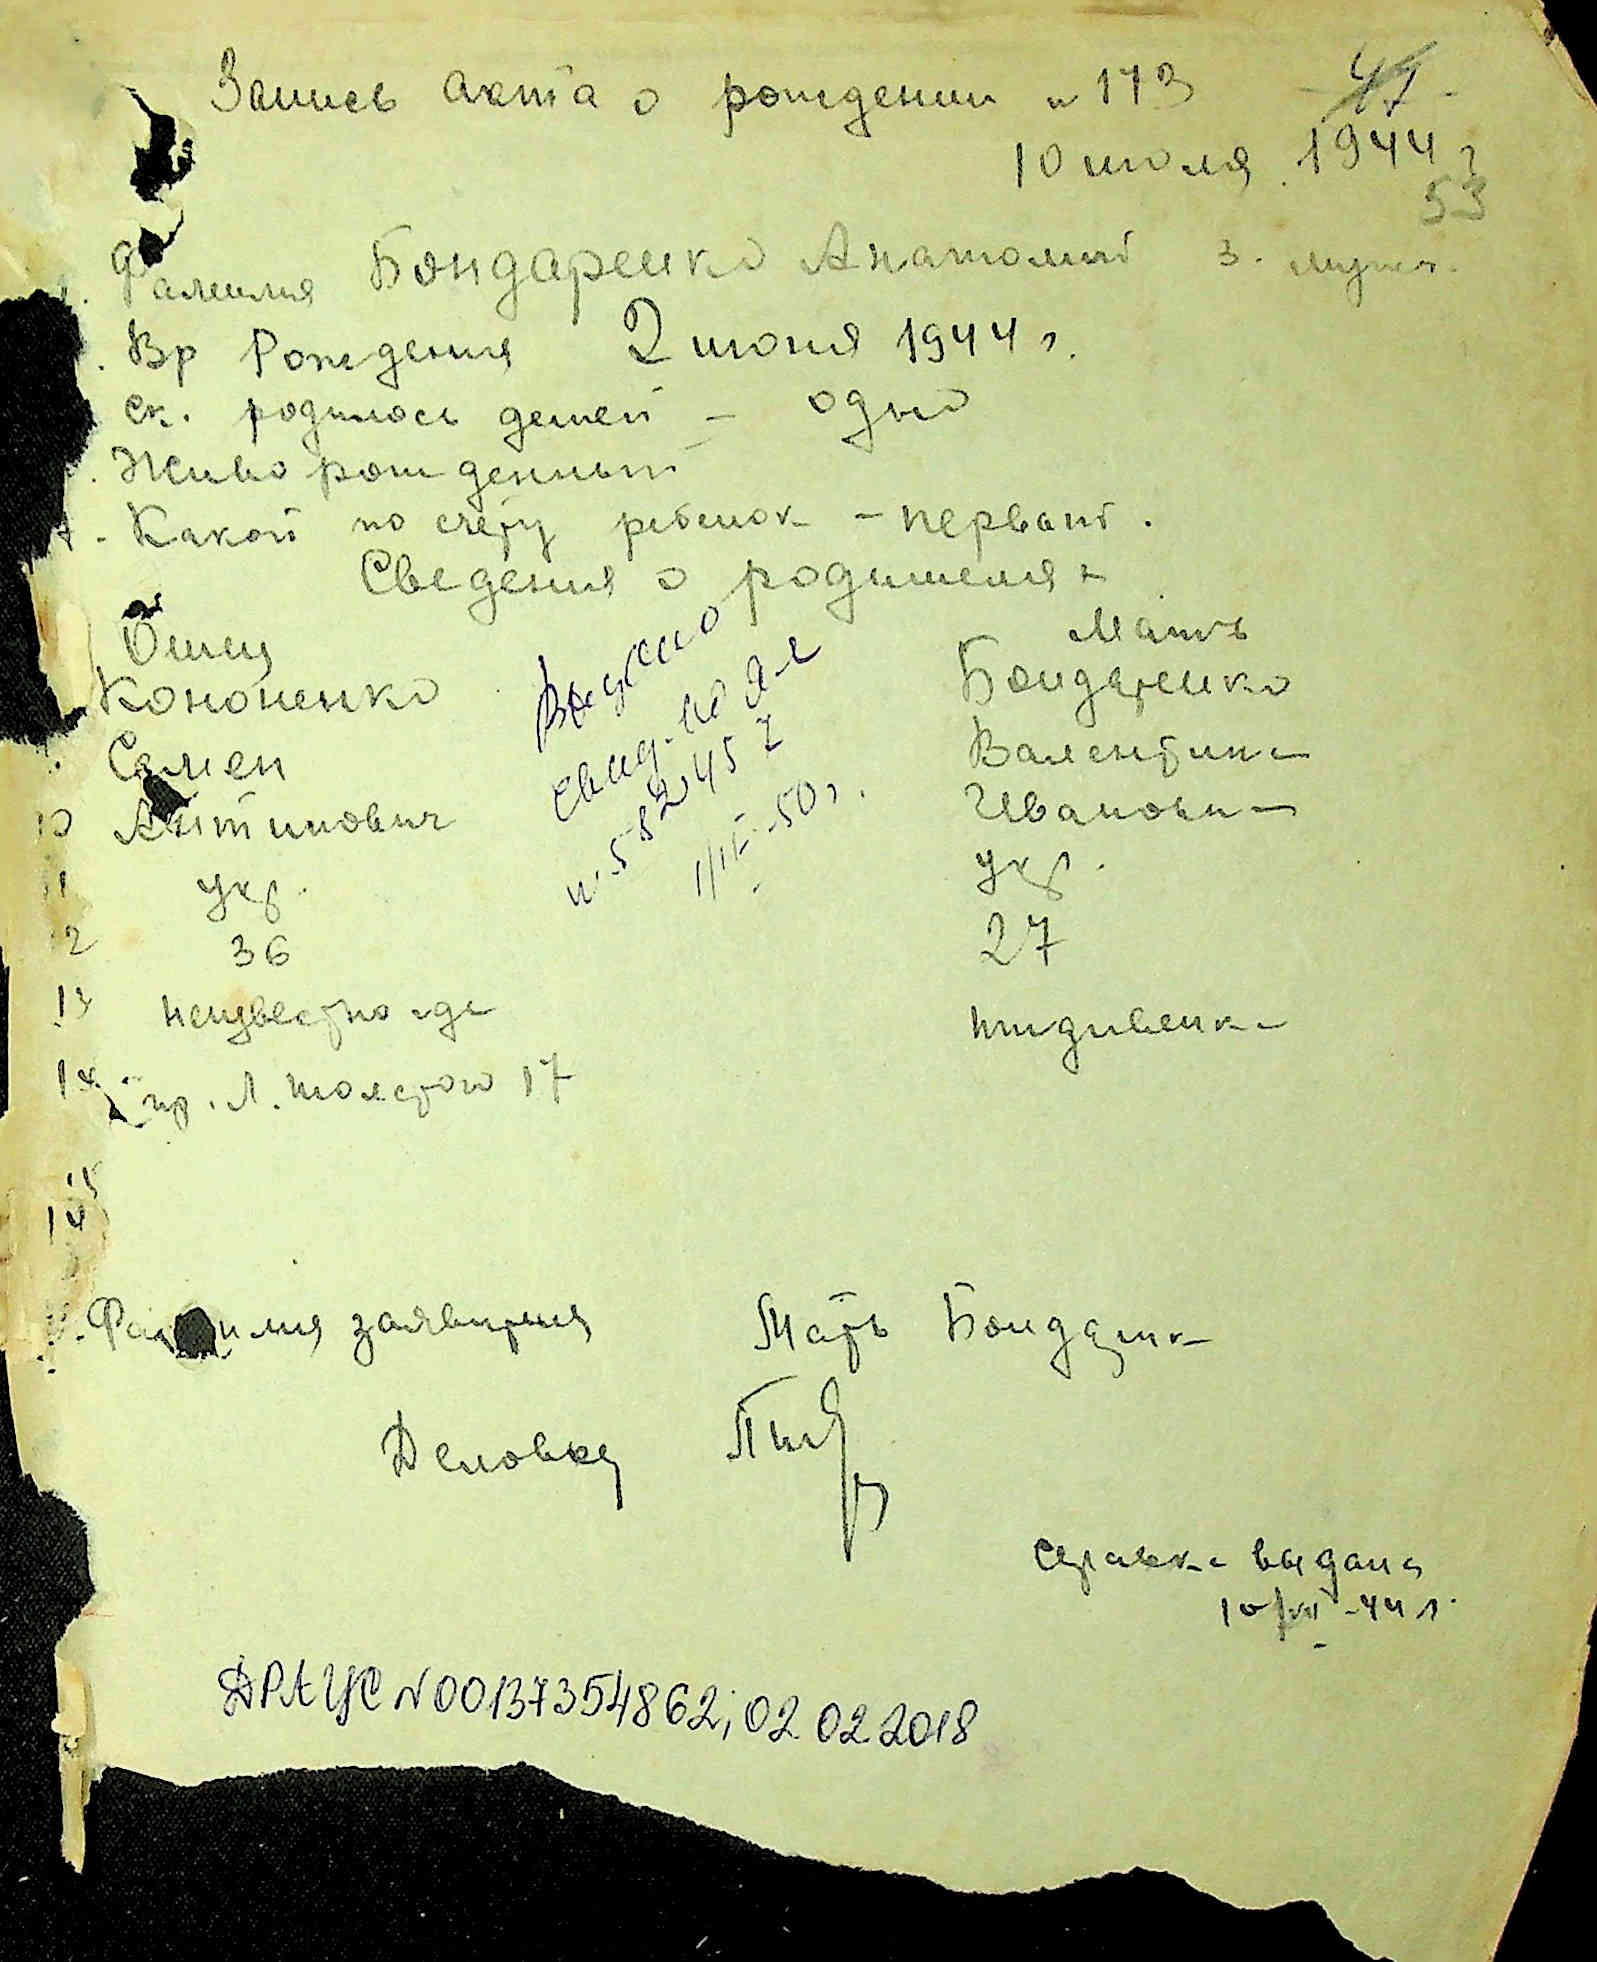 Запись Акта о рождении н 173
47
10 июля 1944 г
53
Фамилия Бондаренко Анатолий 3. мужч.
Вр Рождения 2 июня 1944 г.
Ск. родилось детей - одно
Живорожденный
Какой по счету ребенок - первый.
Сведения о родителях
Отец Мать
Кононенко Бондаренко
Семен Валентина
10 Антипович Ивановна
11 укр. укр.
12 36 27
13 неизвестно где иждивенка
14 пр. Л. Толстого 17
15
14
Выдано
свид.
н. 582457
1/IV-50 г.
Фамилия заявителя Мать Бондаренк
Деловод
Справка выдана
10/VII-44 г.
ДРАЦС N 00137354862; 02 02 2018